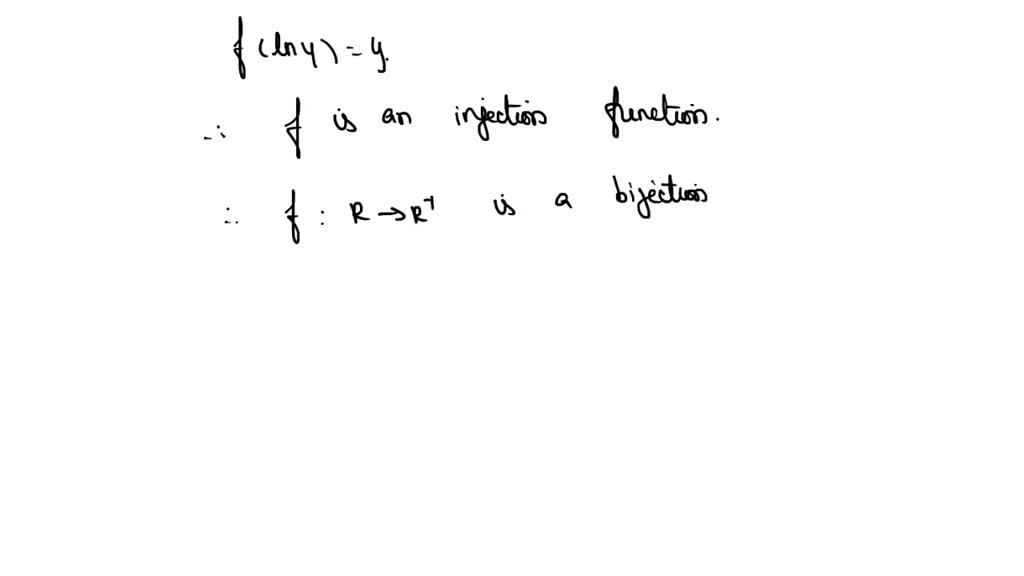 f(ln y) = y.
∴ f is an injection function.
∴ f : R → R⁺ is a bijection